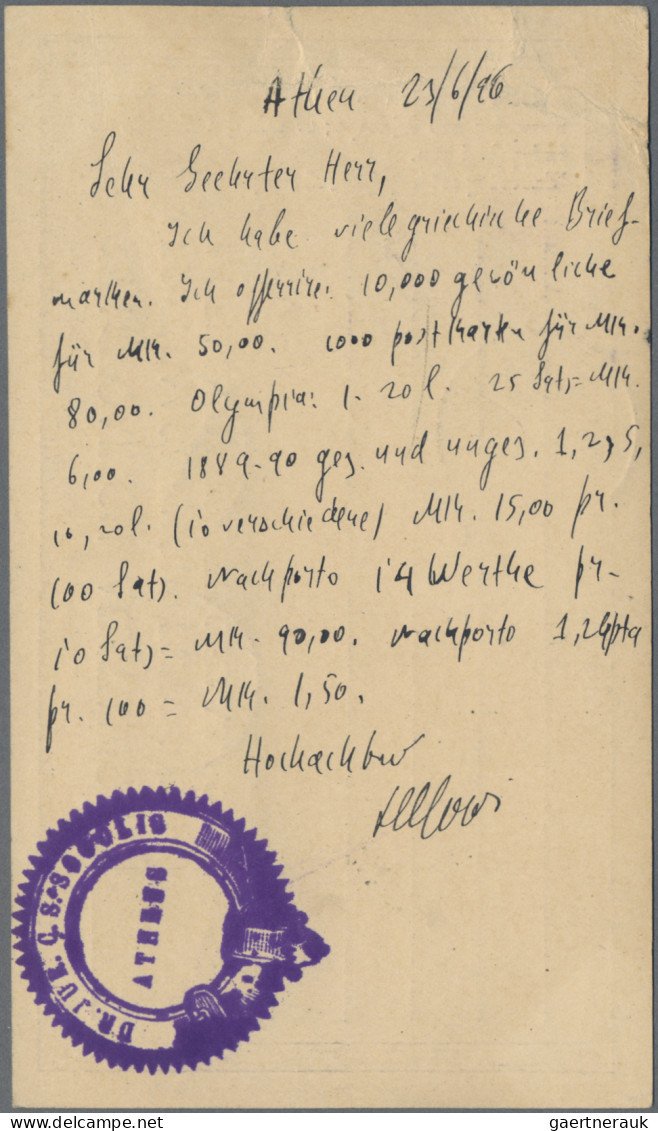 Athen 23/6/96.
Sehr Geehrter Herr,
Ich habe viele griechische Brief-
marken. Ich offerire: 10,000 gewönliche
für Mk. 50,00. 1000 postkarten für Mk.
80,00. Olympia: 1-20 l. 25 Satz= Mk.
6,00. 1889-90 gez. und ungez. 1, 2, 5,
10, 20 l. (10 verschiedene) Mk. 15,00 pr.
100 Satz. Nachporto 14 Werthe pr-
10 Satz= Mk. 90,00. Nachporto 1, 2 lepta
pr. 100 = Mk. 1,50.
Hochachtun
DR. JUL. C. S. SOCOLIS
ATHENS
gaertnerauk